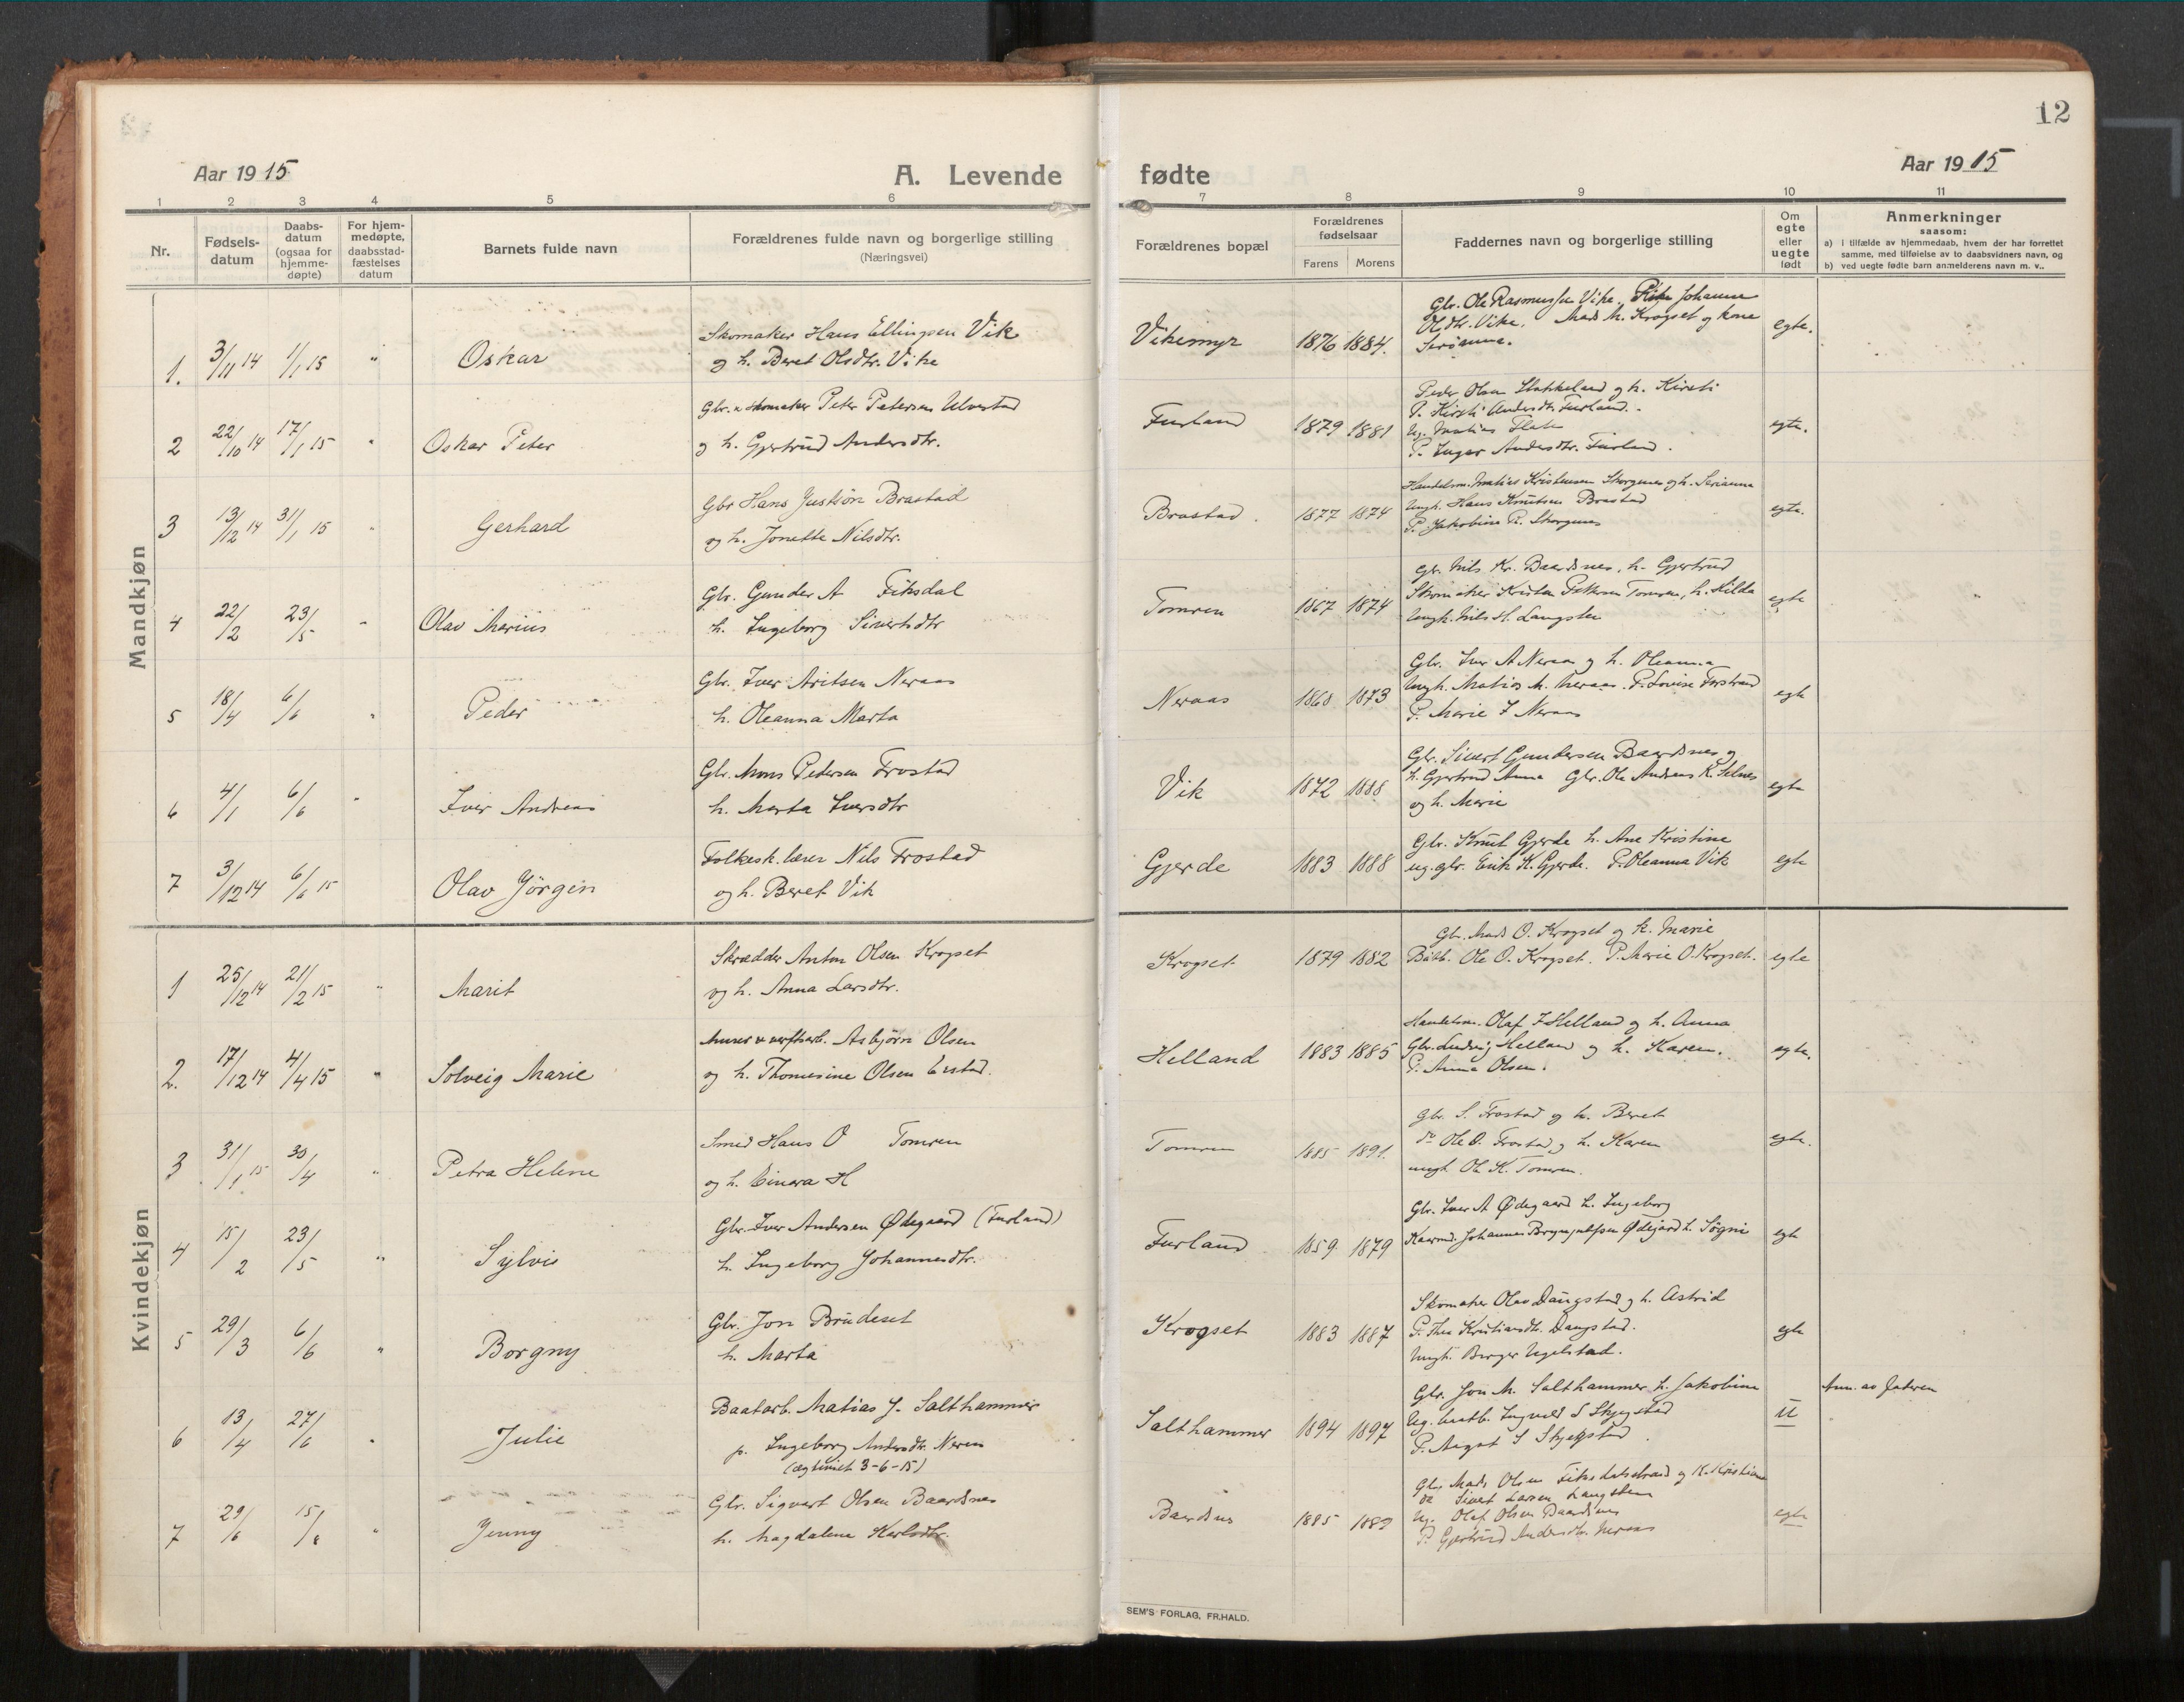 12
Aar 1915
A. Levende fødte
Aar 1915
1 2 3 4 5 6 7 8 9 10 11
Nr.
Fødsels-
datum
Daabs-
datum
(ogsaa for
hjemme-
døpte)
For hjem-
medøpte,
daabsstad-
fæstelses
datum
Barnets fulde navn
Forældrenes fulde navn og borgerlige stilling
(Næringsvei)
Forældrenes bopæl
Forældrenes
fødselsaar
Farens Morens
Faddernes navn og borgerlige stilling
Om
egte
eller
uegte
født
Anmerkninger
saasom:
a) i tilfælde av hjemmedaab, hvem der har forrettet
samme, med tilføielse av to daabsvidners navn, og
b) ved uegte fødte barn anmelderens navn m. v..
Mandkjøn
1. 3/11 14 1/1 15 " Oskar
Skomaker Hans Ellingsen Vik
og h. Beret Olsdtr. Vike
Vikemyr 1876 1884.
Gbr. Ole Rasmussen Vike. Johanne
Olsdtr. Vike. Mads M. Krogset og kone
Serianna.
egte.
2 22/10 14 17/1 15 " Oskar Peter
Gbr. & skomaker Peter Petersen Ulvestad
og h. Gjertrud Andersdtr.
Furland 1879 1881
Peder Olsen Slakkeland og h. Kirsti
P. Kirsti Andersdtr. Furland.
Ug. Matias Flate
P. Inger Andersdtr. Furland.
egte.
3 13/12 14 31/1 15 " Gerhard
Gbr Hans Justsøn Brastad
og h. Jonette Nilsdtr.
Brastad. 1877 1874
Handelsm. Matias Kristensen Skorgenes og h. Serianna
Ungk. Hans Knutsen Brastad
P. Jakobine P. Skorgenes
egte.
4 22/2 23/5 " Olav Marius
Gbr. Gunder A Fiksdal
h. Ingeborg Sivertsdtr
Tomren 1867 1874
Gbr. Nils Kr. Baardsnes, h. Gjertrud
Skomaker Kristen Pettersen Tomren, h. Hilda
Ungk. Nils H. Langsten
egte
5 18/4 6/6 " Peder
Gbr. Iver Aritsen Neraas
h. Oleanna Marta
Neraas 1868 1873
Gbr. Iver A Neraas og h. Oleanna
Ungk. Matias M. Neraas. P. Lovise Forstrand
P. Marie I Neraas
egte
6 4/1 6/6 " Iver Andreas
Gbr. Mons Petersen Frostad
h. Marta Iversdtr
Vik 1872 1888
Gbr. Sivert Gundersen Baardsnes og
h. Gjertrud Anna Gbr. Ole Andreas K. Selnes
og h. Marie
egte
7 3/12 14 6/6 15 Olav Jörgen
Folkesk. lærer Nils Frostad
og h. Beret Vik
Gjerde 1883 1888
Gbr. Knut Gjerde h. Ane Kristine
ug. gbr. Erik K. Gjerde. P. Oleanna Vik
egte
Kvindekjøn
1 25/12 14 21/2 15 " Marit
Skrædder Anton Olsen Krogset
og h. Anna Larsdtr.
Krogset 1879 1882
Gbr. Mads O. Krogset og h. Marie
Ole O. Krogset. P. Marie O. Krogset.
egte
2. 17/12 14 4/4 15 " Solveig Marie
Murer & verftsarb. Asbjørn Olsen
og h. Thomesine Olsen Erstad.
Helland 1883 1885
Handelsm. Olaf I Helland og h. Anna
Gbr. Ludvig Helland og h. Karen.
P. Anna Olsen.
egte.
3 31/1 15 30/4 " Petra Helene
Smed Hans O Tomren
og h. Einara H
Tomren 1885 1891.
Gbr. S. Frostad og h. Beret
do Ole O. Frostad og h. Karen
ungk Ole K. Tomren.
egte.
4 15/2 23/5 " Sylvi
Gbr. Iver Andersen Ødegaard (Furland)
h. Ingeborg Johannesdtr.
Furland 1859. 1879
Gbr. Iver A Ødegaard h. Ingeborg
Kaarmd. Johannes Brynjulfsen Ødejard h. Sögni
egte
5 29/3 6/6 " Borgny
Gbr. Jon Brudeset
h. Marta
Krogset 1883 1887
Skomaker Olav Daugstad og h. Astrid
P. Thea Kristiansdtr. Daugstad.
Ungk. Birger Ugelstad.
egte
6 13/4 27/6 " Julie
Baatarb. Matias J. Salthammer
p. Ingeborg Andersdtr. Neren
(ægteviet 3-6-15)
Salthammer 1894 1897
Gbr. Jon M. Salthammer h. Jakobine
Ug. Ingvald S Skjegstad
P. S Skjegstad.
U
Anm. av faderen
7 29/6 15/8 " Jenny
Gbr. Sigvart Olsen Baardsnes
h. Magdalena Karlsdtr.
Baardsnes 1885 1882
Gbr Mads Olsen Fiksdalstrand og h. Kristine
do Sivert Larsen Langsten
Ug. Olaf Olsen Baardsnes
P. Gjertrud Andersdtr. Neraas
egte
SEM'S FORLAG, FR.HALD.